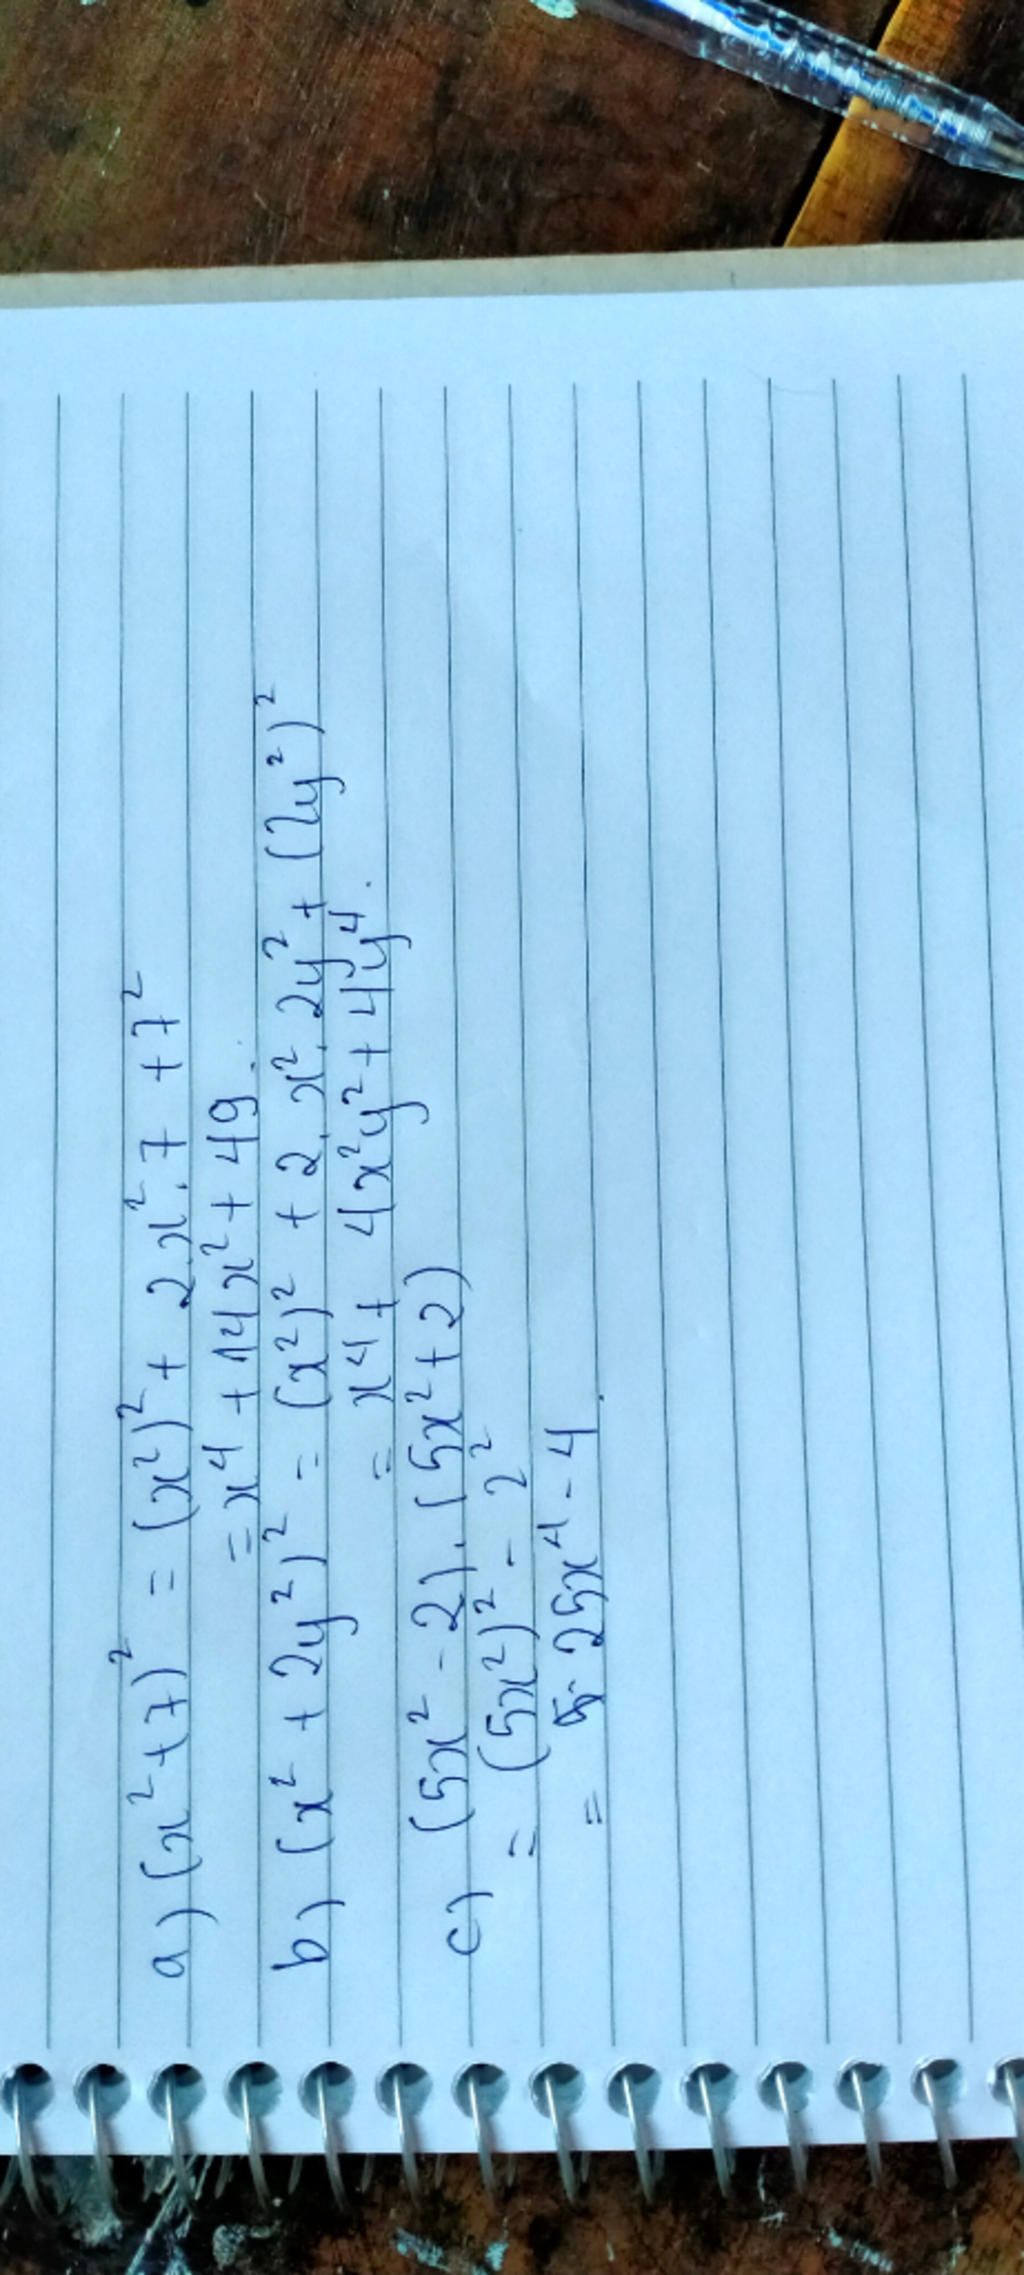 a) (x²+7)² = (x²)² + 2.x².7 + 7²
= x⁴ + 14x² + 49.
b) (x² + 2y²)² = (x²)² + 2.x².2y² + (2y²)²
= x⁴ + 4x²y² + 4y⁴.
c) (5x² - 2).(5x²+2)
= (5x²)² - 2²
= 25x⁴ - 4.